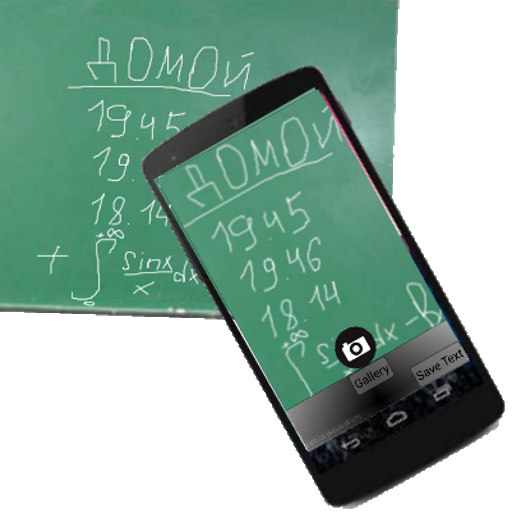 ДОМОЙ
19.45
19.
18.14
+ ∫₀^{+∞} sinx/x dx
ДОМОЙ
19.45
19.46
18.14
+∞
∫ s dx - В
Gallery
Save Text